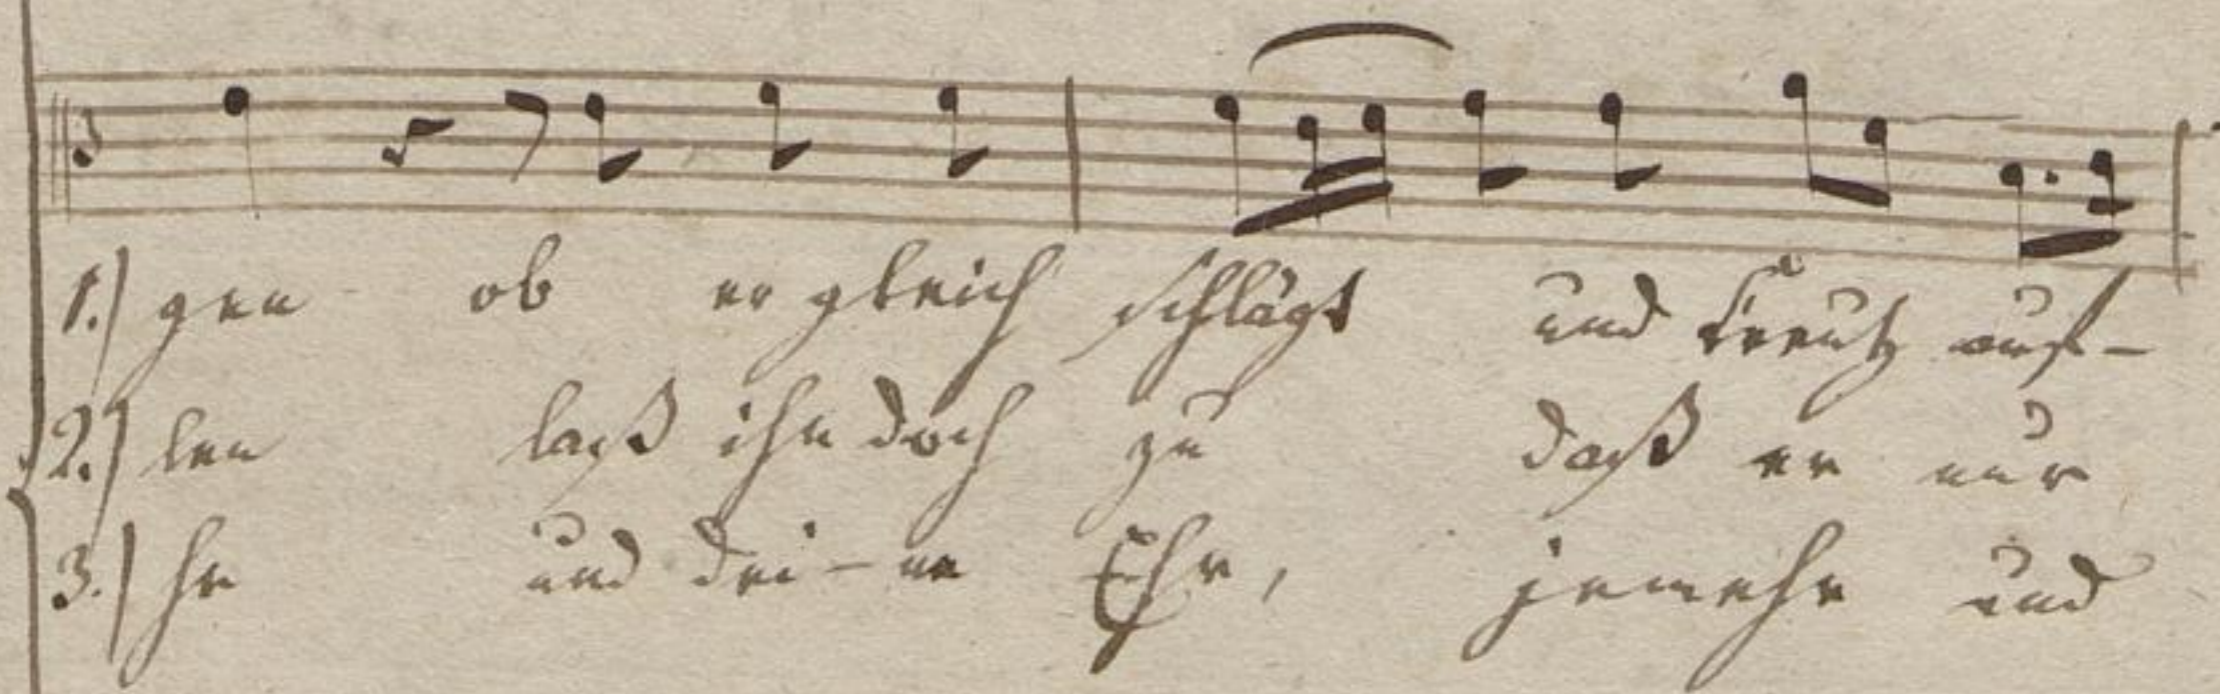 1.) gen ob er gleich schlägt und Kreutz auf-
2.) len laß ihn doch zu daß er nur
3.) he und dei-ne Ehr, jemehr und